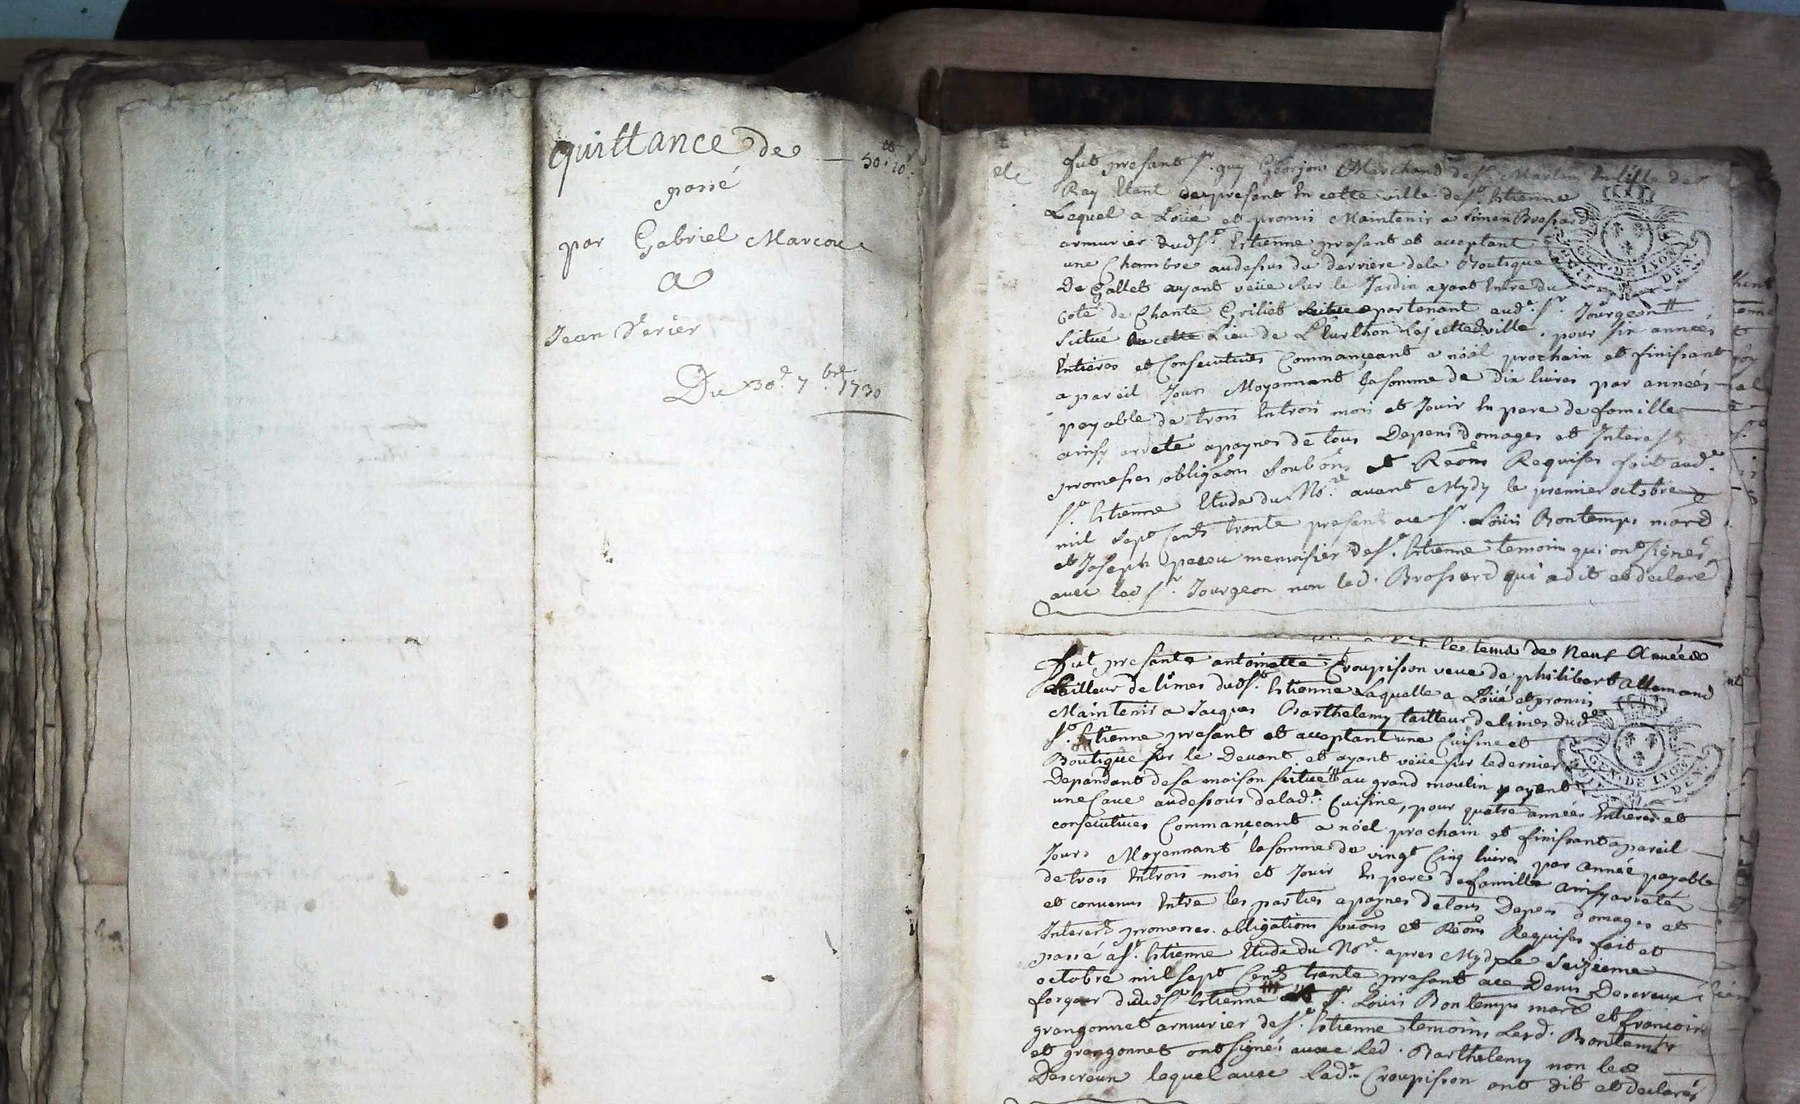 quittance de — 50 ₶ 10 s
passé
par Gabriel Marcou
a
Jean Verier
Du 30e 7bre 1730
fut presant Sr. guy Marchand de St. Martin
Ray Etant de present En cette ville de St. Etienne
Lequel a Loüé et promis Maintenir a Simon Brossard
armurier dudt St. Etienne presant et acceptant
une Chambre audessus du derriere dela Boutique
De Gallet ayant veüe sur le Jardin ayant Entre du
coté de Chante Grillet apartenant aud. Sr. Jourgeon
Situé Lieu de cette ville, pour six années
Entieres et Consecutives Commanceant a nöel prochain et finissant
a pareil Jour Moyennant la somme de dix livres par années
payable de trois En trois mois et Jouir En pere de famille
ainsy arreté a paynes de tous Depens domages et Interests
promesses obligaons Soubons et Reons Requises fait aud.
St. Etienne Etude du Nore. avant Mydy le premier octobre
mil Sept Cents trente presant ace Sr. Loüis Bontemps mard
et Joseph menuisier de St. Etienne temoins qui ont signés
avec led Sr. Jourgeon non led. Brossard qui a dit et declaré
les tems de Neuf Années
fut presante antoinette Croupisson veuve de philibert allemand
tailleur de limes dudt St. Etienne Laquelle a Loüé et promis
Maintenir a Jacques Barthelemy tailleur de limes dudt
St. Etienne presant et acceptant une Cuisine et
Boutique sur le Devant et ayant veüe sur le dernier
Dependant de sa maison scituée au grand moulin
une Cave audessous de lad. Cuisine, pour quatre années Entieres et
consecutives Commanceant a nöel prochain et finissant a pareil
Jours Moyennant la somme de vingt Cinq livres par année payable
de trois En trois mois et Jouir En pere de famille ainsy arreté
et convenus Entre les parties a paynes de tous Depens domages et
Interests promesses obligations Soubons et Reons Requises fait et
passé a St. Etienne Etude du Nore. apres Mydy Le Seizieme
octobre mil sept Cents trente presant ace Denis Descreux
forgeur dudt St. Etienne Sr. Loüis Bontemps mard et francois
grangonnet armurier de St. Etienne temoins Lesd. Bontemps
et grangonnet ont signés avec Led. Barthelemy non led
Descreux lequel avec Lade Croupisson ont dit et declarés
GEN. DE LYON
GEN. DE LYON